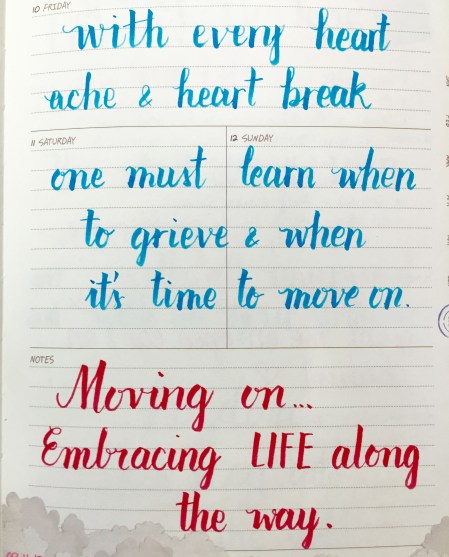 10 FRIDAY
with every heart
ache & heart break
11 SATURDAY 12 SUNDAY
one must learn when
to grieve & when
it's time to move on.
NOTES
Moving on...
Embracing LIFE along
the way.